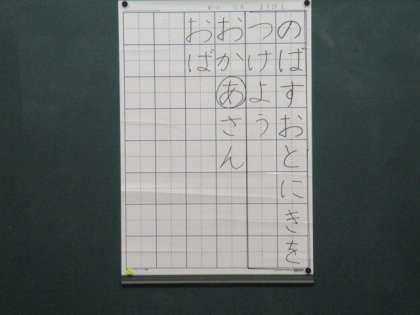 のばすおとにきを
つけよう
おかあさん
おば